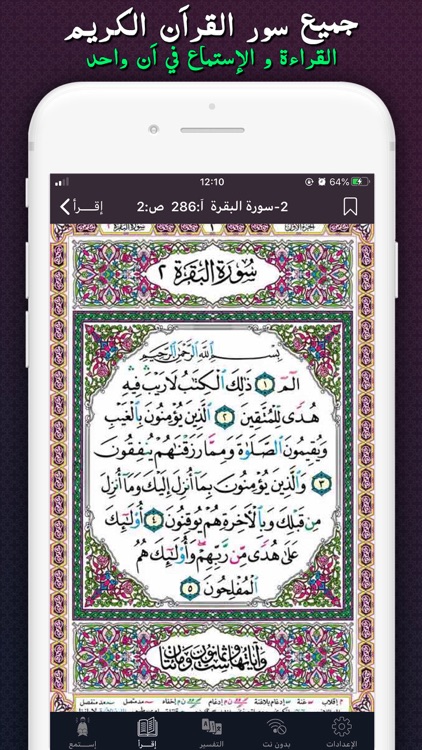 جميع سور القرآن الكريم
القراءة و الإستماع في آن واحد
12:10
64%
إقـرأ
2-سورة البقرة آ:286 ص:2
سُورَةُ البَقَرَة ٢
بِسْمِ ٱللَّهِ ٱلرَّحْمَٰنِ ٱلرَّحِيمِ
الٓمٓ ١ ذَٰلِكَ ٱلْكِتَٰبُ لَا رَيْبَ فِيهِ
هُدًى لِّلْمُتَّقِينَ ٢ ٱلَّذِينَ يُؤْمِنُونَ بِٱلْغَيْبِ
وَيُقِيمُونَ ٱلصَّلَوٰةَ وَمِمَّا رَزَقْنَٰهُمْ يُنفِقُونَ
٣ وَٱلَّذِينَ يُؤْمِنُونَ بِمَآ أُنزِلَ إِلَيْكَ وَمَآ أُنزِلَ
مِن قَبْلِكَ وَبِٱلْأَخِرَةِ هُمْ يُوقِنُونَ ٤ أُو۟لَٰٓئِكَ
عَلَىٰ هُدًى مِّن رَّبِّهِمْ وَأُو۟لَٰٓئِكَ هُمُ
ٱلْمُفْلِحُونَ ٥
وَآيَاتُهَا سِتٌّ وَثَمَانُونَ وَمِائَتَانِ
إستمع
إقـرأ
التفسير
بدون نت
الإعدادات